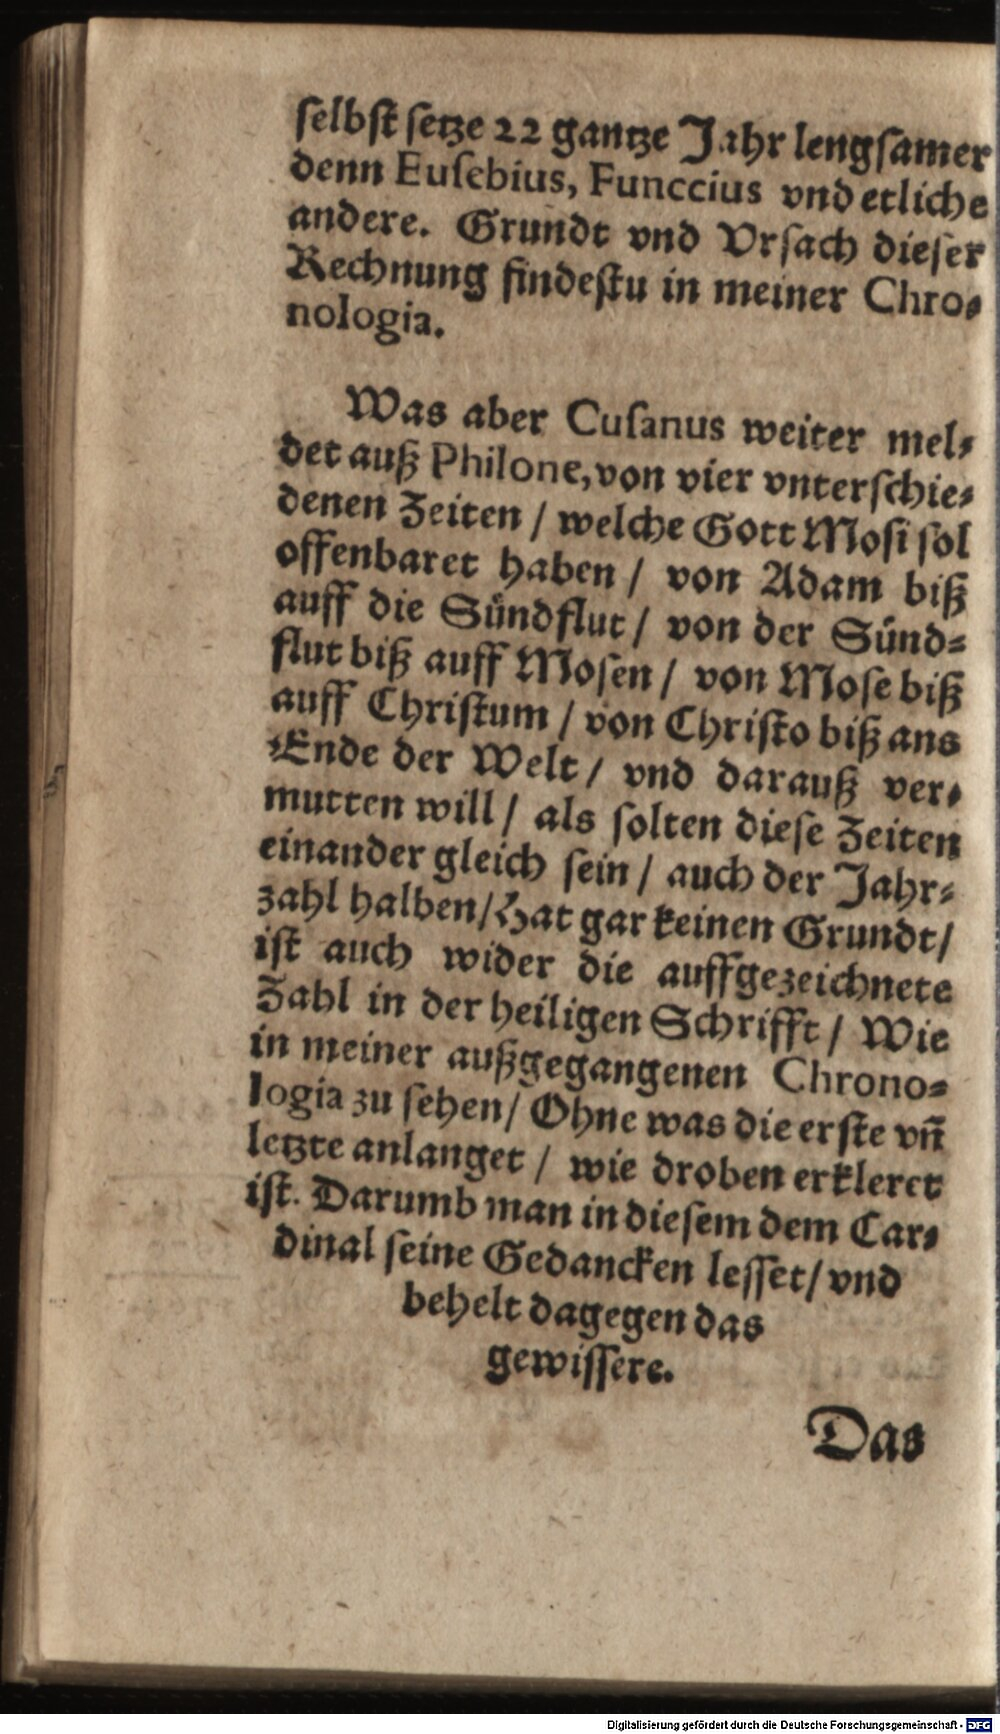 selbst setze 22 gantze Jahr lengsamer
denn Eusebius, Funccius vnd etliche
andere. Grundt vnd Vrsach dieser
Rechnung findestu in meiner Chro-
nologia.
Was aber Cusanus weiter mel-
det auß Philone, von vier vnterschie-
denen Zeiten / welche Gott Mosi sol
offenbaret haben / von Adam biß
auff die Sündflut / von der Sünd-
flut biß auff Mosen / von Mose biß
auff Christum / von Christo biß ans
Ende der Welt / vnd darauß ver-
mutten will / als solten diese Zeiten
einander gleich sein / auch der Jahr-
zahl halben / Hat gar keinen Grundt /
ist auch wider die auffgezeichnete
Zahl in der heiligen Schrifft / Wie
in meiner außgegangenen Chrono-
logia zu sehen / Ohne was die erste vn̄
letzte anlanget / wie droben erkleret
ist. Darumb man in diesem dem Car-
dinal seine Gedancken lesset / vnd
behelt dagegen das
gewissere.
Das
Digitalisierung gefördert durch die Deutsche Forschungsgemeinschaft - DFG